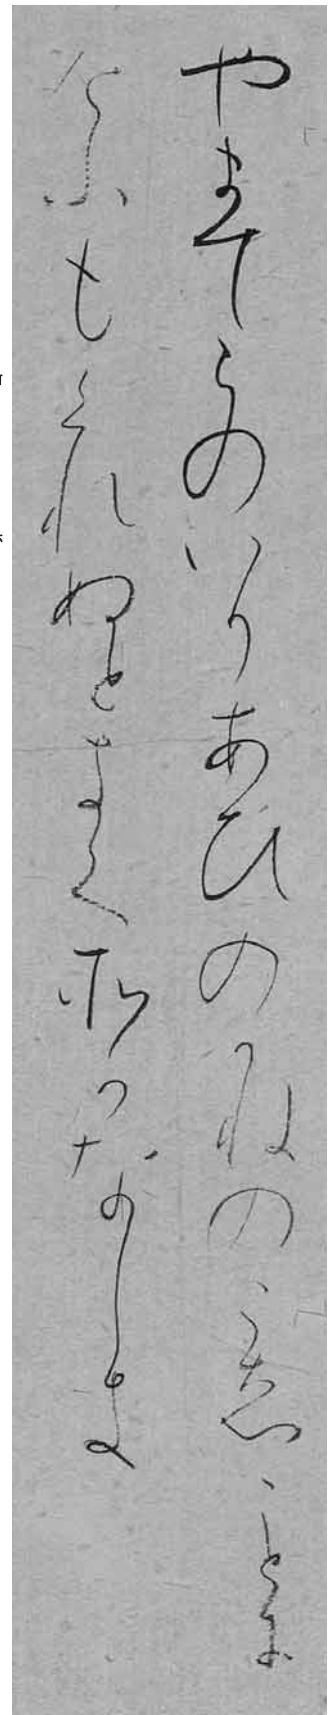 やまてらのいりあひのかねのこゑことに
けふもくれぬときくそかなしき